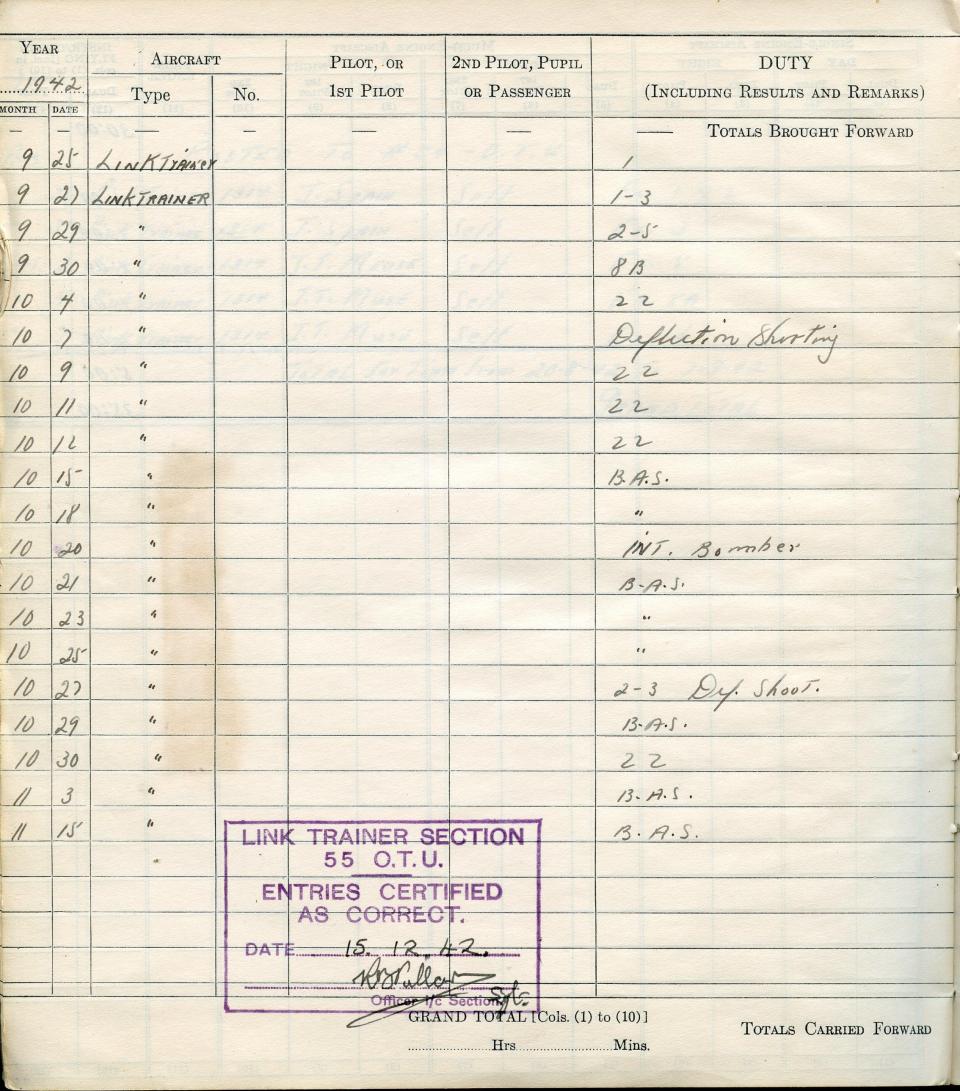 YEAR AIRCRAFT PILOT, OR 2ND PILOT, PUPIL DUTY
1942 Type No. 1ST PILOT OR PASSENGER (INCLUDING RESULTS AND REMARKS)
MONTH DATE
— — — — — — — TOTALS BROUGHT FORWARD
9 25 LINK TRAINER 1
9 27 LINK TRAINER 1-3
9 29 " 2-5
9 30 " 8B
10 4 " 22
10 7 " Deflection Shooting
10 9 " 22
10 11 " 22
10 12 " 22
10 15 " B.A.S.
10 18 " "
10 20 " INT. Bomber
10 21 " B.A.S.
10 23 " "
10 25 " "
10 27 " 2-3 Def. Shoot.
10 29 " B.A.S.
10 30 " 22
11 3 " B.A.S.
11 15 " B.A.S.
LINK TRAINER SECTION
55 O.T.U.
ENTRIES CERTIFIED
AS CORRECT.
DATE 15.12.42.
Officer i/c Section
GRAND TOTAL [Cols. (1) to (10)]
TOTALS CARRIED FORWARD
Hrs. Mins.